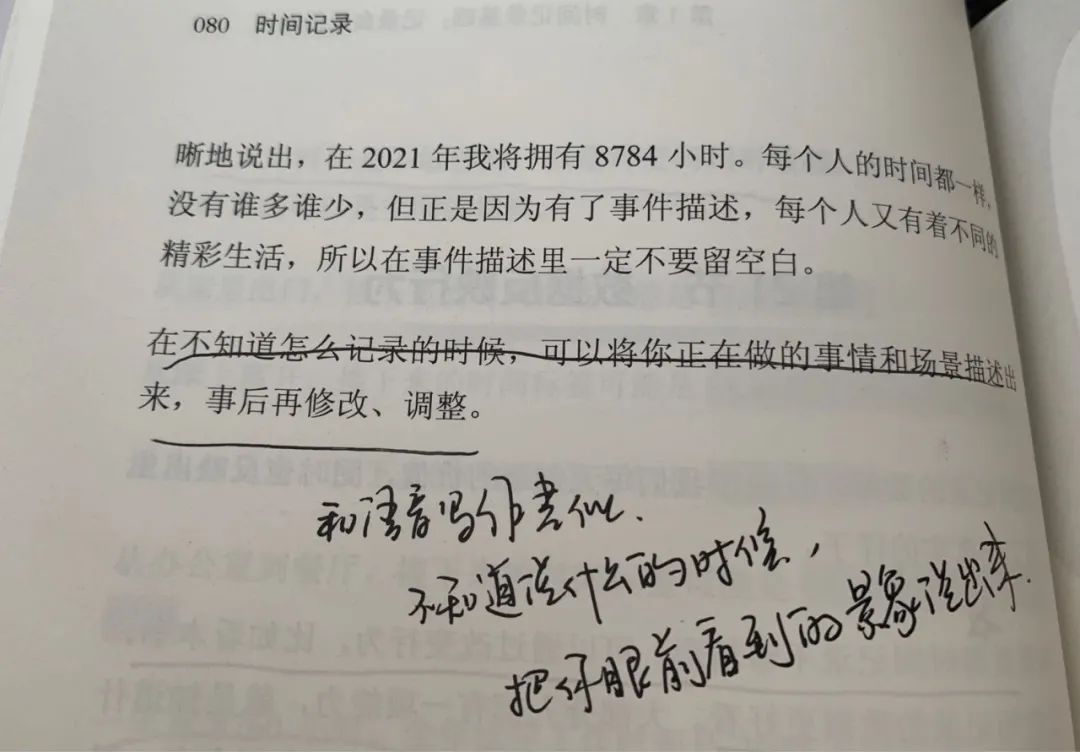 080 时间记录
晰地说出，在 2021 年我将拥有 8784 小时。每个人的时间都一样，
没有谁多谁少，但正是因为有了事件描述，每个人又有着不同的
精彩生活，所以在事件描述里一定不要留空白。
在不知道怎么记录的时候，可以将你正在做的事情和场景描述出
来，事后再修改、调整。
和语音写作类似.
不知道说什么的时候，
把你眼前看到的景象说出来.